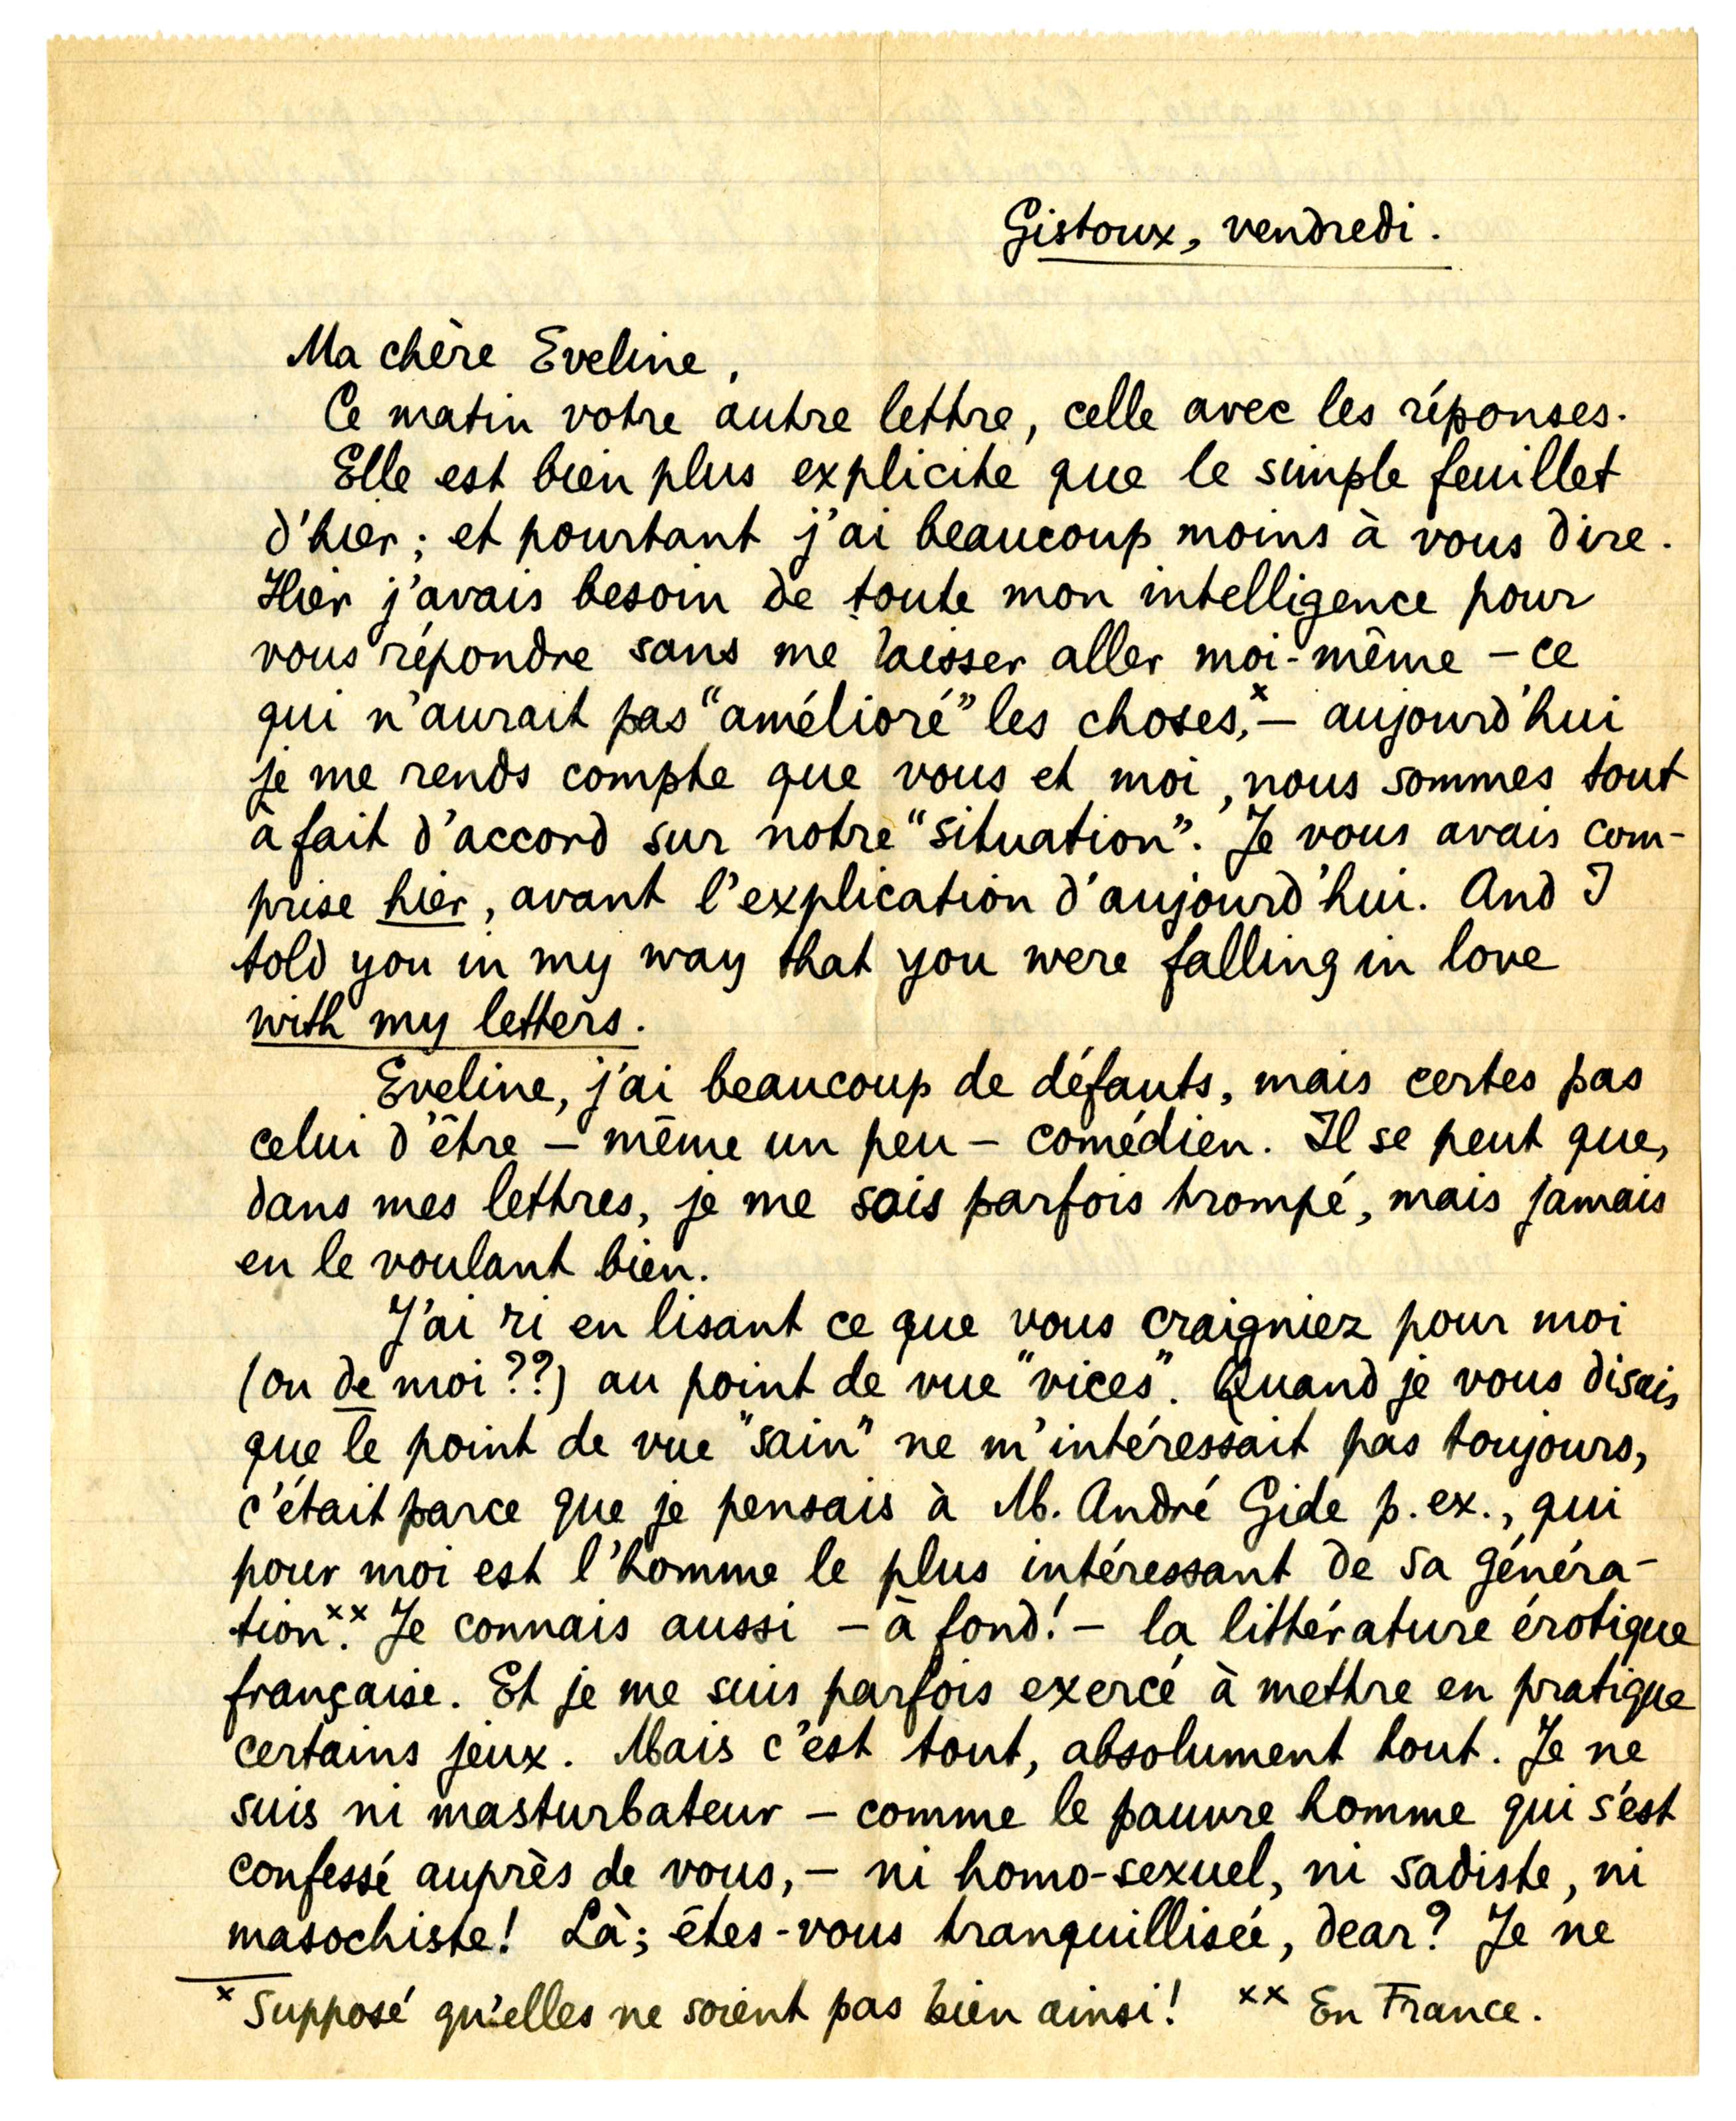 Gistoux, vendredi.
Ma chère Eveline,
Ce matin votre autre lettre, celle avec les réponses.
Elle est bien plus explicite que le simple feuillet
d'hier; et pourtant j'ai beaucoup moins à vous dire.
Hier j'avais besoin de toute mon intelligence pour
vous répondre sans me laisser aller moi-même – ce
qui n'aurait pas "amélioré" les choses,ˣ – aujourd'hui
je me rends compte que vous et moi, nous sommes tout
à fait d'accord sur notre "situation". Je vous avais com-
prise hier, avant l'explication d'aujourd'hui. And I
told you in my way that you were falling in love
with my letters.
Eveline, j'ai beaucoup de défauts, mais certes pas
celui d'être – même un peu – comédien. Il se peut que,
dans mes lettres, je me sois parfois trompé, mais jamais
en le voulant bien.
J'ai ri en lisant ce que vous craigniez pour moi
(ou de moi??) au point de vue "vices". Quand je vous disais
que le point de vue "sain" ne m'intéressait pas toujours,
c'était parce que je pensais à M. André Gide p. ex., qui
pour moi est l'homme le plus intéressant de sa généra-
tionˣˣ. Je connais aussi – à fond! – la littérature érotique
française. Et je me suis parfois exercé à mettre en pratique
certains jeux. Mais c'est tout, absolument tout. Je ne
suis ni masturbateur – comme le pauvre homme qui s'est
confessé auprès de vous, – ni homo-sexuel, ni sadiste, ni
masochiste! Là; êtes-vous tranquillisée, dear? Je ne
ˣ Supposé qu'elles ne soient pas bien ainsi! ˣˣ En France.